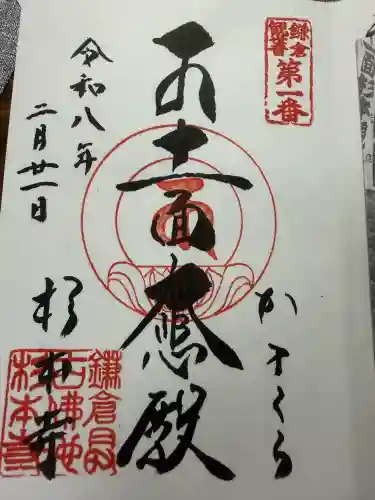 鎌倉
観音
第一番
かまくら
十一面大悲殿
令和八年
二月廿一日
杉本寺
鎌倉最
古佛地
杉本寺